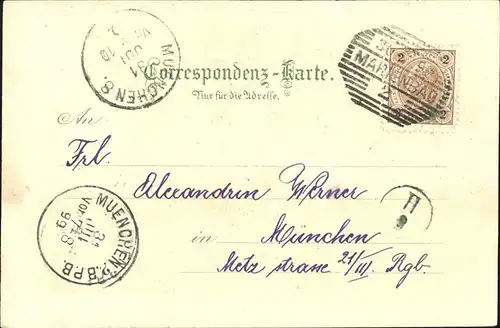 MUENCHEN 8.
31 JUL
Correspondenz-Karte.
Nur für die Adresse.
MARIENBAD
2 2
2 2
An
Frl.
Alexandrin Werner
in München
Metz strasse 21/III. Rgb.
MUENCHEN 2.B.P.B.
31 JUL
99
II
9